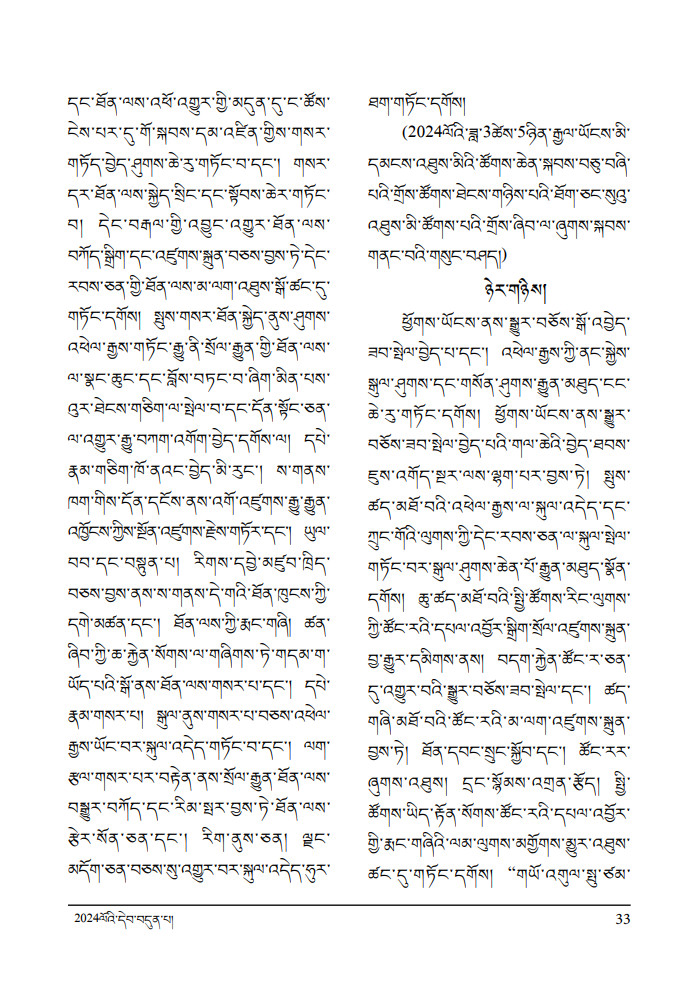 དང་ཐོན་ལས་འཕོ་འགྱུར་གྱི་མདུན་དུ་ང་ཚོས་
ངེས་པར་དུ་གོ་སྐབས་དམ་འཛིན་གྱིས་གསར་
གཏོད་བྱེད་ཤུགས་ཆེ་རུ་གཏོང་བ་དང་། གསར་
དར་ཐོན་ལས་སྐྱེད་སྲིང་དང་སྟོབས་ཆེར་གཏོང་
བ། དེང་བརྒལ་གྱི་འབྱུང་འགྱུར་ཐོན་ལས་
བཀོད་སྒྲིག་དང་འཛུགས་སྐྲུན་བཅས་བྱས་ཏེ་དེང་
རབས་ཅན་གྱི་ཐོན་ལས་མ་ལག་འཐུས་སྒོ་ཚང་དུ་
གཏོང་དགོས། སྤུས་གསར་ཐོན་སྐྱེད་ནུས་ཤུགས་
འཕེལ་རྒྱས་གཏོང་རྒྱུ་ནི་སྲོལ་རྒྱུན་གྱི་ཐོན་ལས་
ལ་སྣང་ཆུང་དང་བློས་བཏང་བ་ཞིག་མིན་པས་
འུར་ཐེངས་གཅིག་ལ་སྤེལ་བ་དང་དོན་སྟོང་ཅན་
ལ་འགྱུར་རྒྱུ་བཀག་འགོག་བྱེད་དགོས་ལ། དཔེ་
རྣམ་གཅིག་ཁོ་ནའང་བྱེད་མི་རུང་། ས་གནས་
ཁག་གིས་དོན་དངོས་ནས་འགོ་འཛུགས་རྒྱུ་རྒྱུན་
འཁྱོངས་ཀྱིས་སྔོན་འཛུགས་རྗེས་གཏོར་དང་། ཡུལ་
བབ་དང་བསྟུན་པ། རིགས་དབྱེ་མཛུབ་ཁྲིད་
བཅས་བྱས་ནས་ས་གནས་དེ་གའི་ཐོན་ཁུངས་ཀྱི་
དགེ་མཚན་དང་། ཐོན་ལས་ཀྱི་རྨང་གཞི། ཚན་
ཞིབ་ཀྱི་ཆ་རྐྱེན་སོགས་ལ་གཞིགས་ཏེ་གདམ་ག་
ཡོད་པའི་སྒོ་ནས་ཐོན་ལས་གསར་པ་དང་། དཔེ་
རྣམ་གསར་པ། སྒུལ་ནུས་གསར་པ་བཅས་འཕེལ་
རྒྱས་ཡོང་བར་སྐུལ་འདེད་གཏོང་བ་དང་། ལག་
རྩལ་གསར་པར་བརྟེན་ནས་སྲོལ་རྒྱུན་ཐོན་ལས་
བསྒྱུར་བཀོད་དང་རིམ་སྤར་བྱས་ཏེ་ཐོན་ལས་
རྩེར་སོན་ཅན་དང་། རིག་ནུས་ཅན། ལྗང་
མདོག་ཅན་བཅས་སུ་འགྱུར་བར་སྐུལ་འདེད་ཧུར་
ཐག་གཏོང་དགོས།
(2024ལོའི་ཟླ་3ཚེས་5ཉིན་རྒྱལ་ཡོངས་མི་
དམངས་འཐུས་མིའི་ཚོགས་ཆེན་སྐབས་བཅུ་བཞི་
པའི་གྲོས་ཚོགས་ཐེངས་གཉིས་པའི་ཐོག་ཅང་སུའུ་
འཐུས་མི་ཚོགས་པའི་གྲོས་ཞིབ་ལ་ཞུགས་སྐབས་
གནང་བའི་གསུང་བཤད།)
ཉེར་གཉིས།
ཕྱོགས་ཡོངས་ནས་སྒྱུར་བཅོས་སྒོ་འབྱེད་
ཟབ་སྤེལ་བྱེད་པ་དང་། འཕེལ་རྒྱས་ཀྱི་ནང་སྐྱེས་
སྒུལ་ཤུགས་དང་གསོན་ཤུགས་རྒྱུན་མཐུད་ངང་
ཆེ་རུ་གཏོང་དགོས། ཕྱོགས་ཡོངས་ནས་སྒྱུར་
བཅོས་ཟབ་སྤེལ་བྱེད་པའི་གལ་ཆེའི་བྱེད་ཐབས་
ཇུས་འགོད་སྔར་ལས་ལྷག་པར་བྱས་ཏེ། སྤུས་
ཚད་མཐོ་བའི་འཕེལ་རྒྱས་ལ་སྐུལ་འདེད་དང་
ཀྲུང་གོའི་ལུགས་ཀྱི་དེང་རབས་ཅན་ལ་སྐུལ་སྤེལ་
གཏོང་བར་སྒུལ་ཤུགས་ཆེན་པོ་རྒྱུན་མཐུད་སྣོན་
དགོས། ཆུ་ཚད་མཐོ་བའི་སྤྱི་ཚོགས་རིང་ལུགས་
ཀྱི་ཚོང་རའི་དཔལ་འབྱོར་སྒྲིག་སྲོལ་འཛུགས་སྐྲུན་
བྱ་རྒྱུར་དམིགས་ནས། བདག་རྐྱེན་ཚོང་ར་ཅན་
དུ་འགྱུར་བའི་སྒྱུར་བཅོས་ཟབ་སྤེལ་དང་། ཚད་
གཞི་མཐོ་བའི་ཚོང་རའི་མ་ལག་འཛུགས་སྐྲུན་
བྱས་ཏེ། ཐོན་དབང་སྲུང་སྐྱོབ་དང་། ཚོང་རར་
ཞུགས་འཐུས། དྲང་སྙོམས་འགྲན་རྩོད། སྤྱི་
ཚོགས་ཡིད་རྟོན་སོགས་ཚོང་རའི་དཔལ་འབྱོར་
གྱི་རྨང་གཞིའི་ལམ་ལུགས་མགྱོགས་མྱུར་འཐུས་
ཚང་དུ་གཏོང་དགོས། “གཡོ་འགུལ་སྤུ་ཙམ་
2024ལོའི་དེབ་བདུན་པ།
33